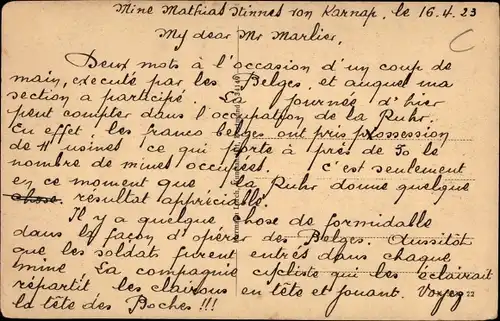 Mine Mathias Stinnes von Karnap, le 16.4.23
My dear Mr Marlier,
Deux mots à l'occasion d'un coup de
main, executé par les Belges, et auquel ma
section a participé. La journée d'hier
peut compter dans l'occupation de la Ruhr.
En effet, les franco belges ont pris possession
de 4 usines ce qui porte à près de 50 le
nombre de mines occupées. c'est seulement
en ce moment que la Ruhr donne quelque
chose résultat appréciable.
Il y a quelque chose de formidable
dans la façon d'opérer des Belges. Aussitôt
que les soldats furent entrés dans chaque
mine la compagnie cycliste qui les éclairait
répartit les clairons en tête et jouant. Voyez
la tête des Boches !!!